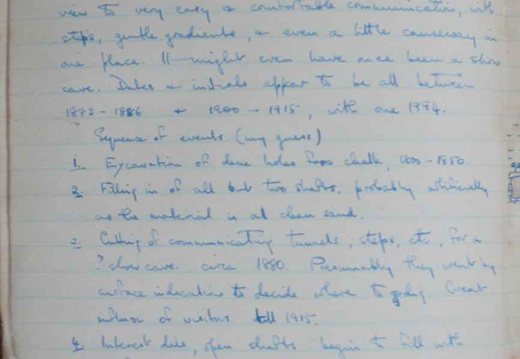 view to very easy & comfortable communication, with
steps, gentle gradients, & even a little causeway in
one place. It might even have once been a show
cave. Dates & initials appear to be all between
1883 - 1886 + 1900 - 1915, with one 1994.
Sequence of events (my guess)
1. Excavation of dene holes for chalk, 1800-1850.
2. Filling in of all but two shafts, probably artificially
as the material is all clean sand.
3. Cutting of communicating tunnels, steps, etc, for a
? show cave. circa 1880. Presumably they went by
surface indications to decide where to go. Great
influx of visitors till 1915.
4. Interest dies, open shafts begin to fill with